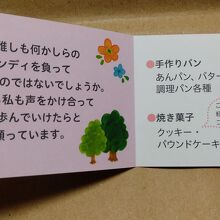 誰しも何かしらの
ンディを負って
のではないでしょうか。
私も声をかけ合って
歩んでいけたらと
っています。
手作りパン
あんパン、バター
調理パン各種
焼き菓子
クッキー・
パウンドケーキ